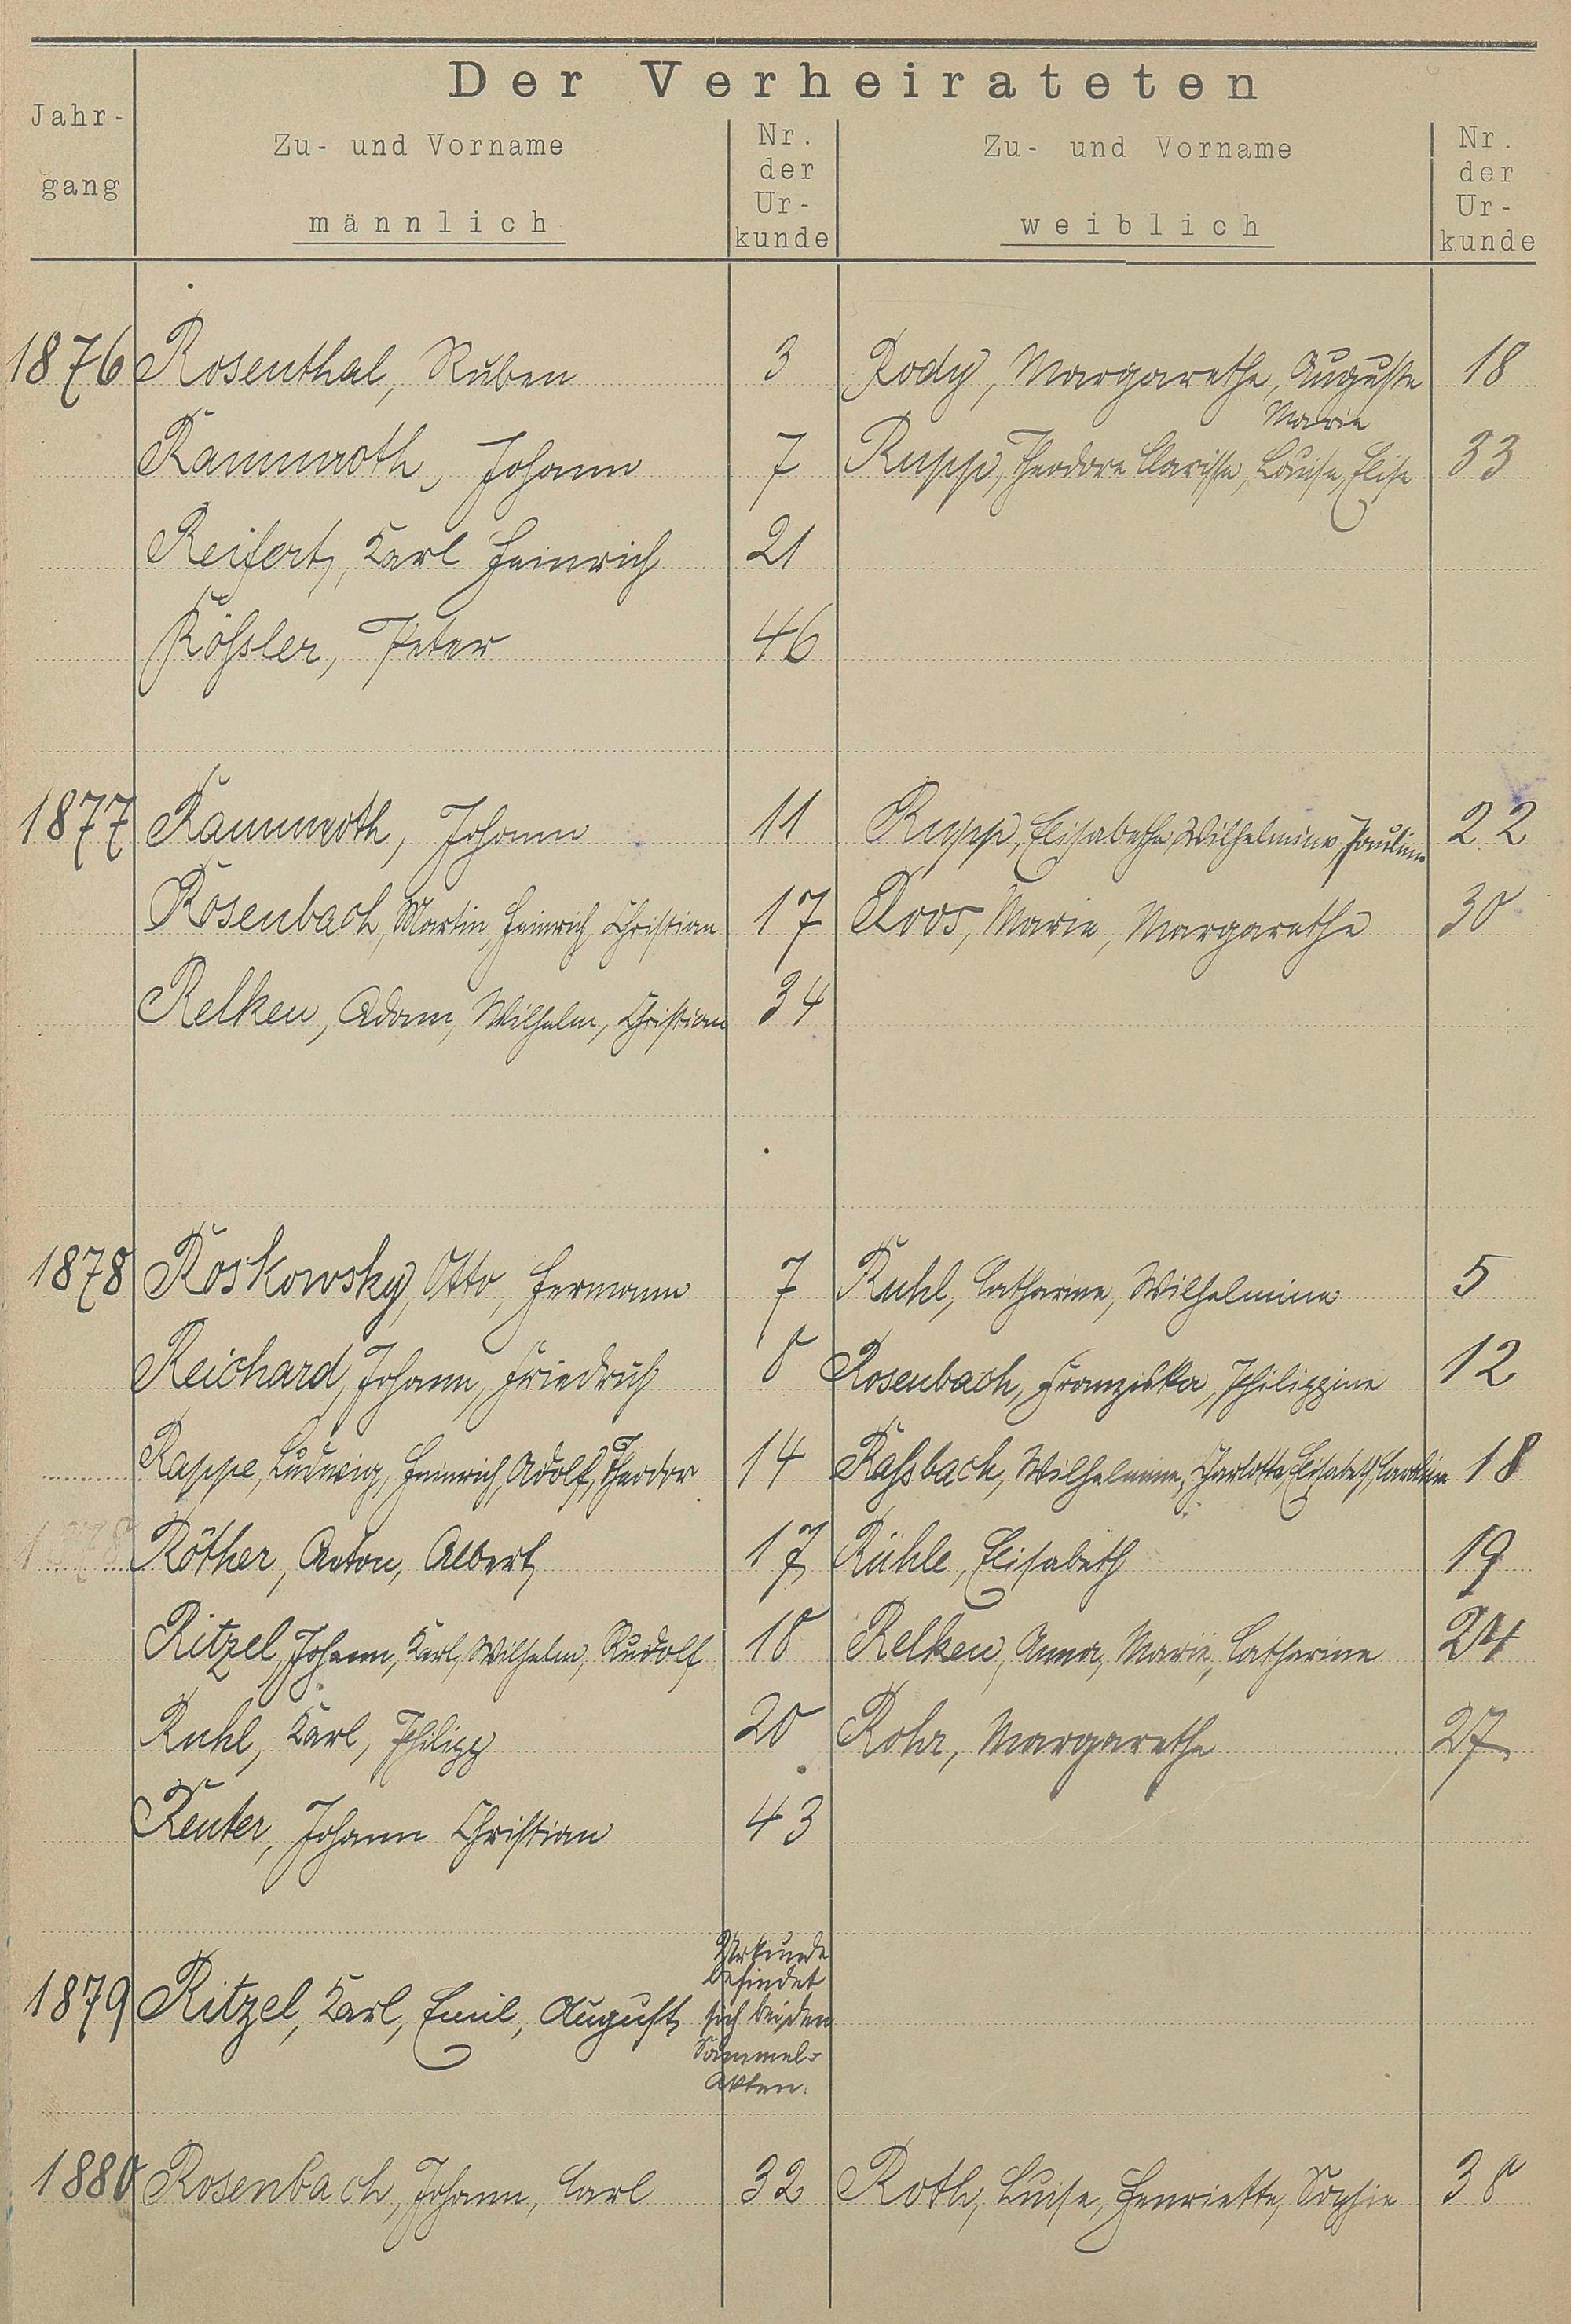 Der Verheirateten
Jahr-
gang
Zu- und Vorname
männlich
Nr.
der
Ur-
kunde
Zu- und Vorname
weiblich
Nr.
der
Ur-
kunde
1876 Rosenthal, Ruben 3 Rody, Margarethe, Auguste 18
Marie
Rammroth, Johann 7 Rupp, Theodore Clarisse, Louise, Elise 33
Reifert, Karl Heinrich 21
Rößler, Peter 46
1877 Rammroth, Johann 11 Rupp, Elisabethe, Wilhelmine, Pauline 22
Rosenbach, Martin, Heinrich Christian 17 Roos, Marie, Margarethe 30
Relken, Adam, Wilhelm, Christian 34
1878 Roskowsky, Otto, Hermann 7 Ruhl, Catharine, Wilhelmine 5
Reichard, Johann, Friedrich 8 Rosenbach, Franziska, Philippine 12
Rappe, Ludwig, Heinrich, Adolf, Theodor 14 Raßbach, Wilhelmine, Charlotte, Elisabeth, Caroline 18
1878 Röther, Anton, Albert 17 Rühle, Elisabeth 19
Ritzel, Johann, Karl, Wilhelm, Rudolf 18 Relken, Anna, Marie, Catharine 24
Ruhl, Karl, Philipp 20 Rohr, Margarethe 27
Reuter, Johann Christian 43
Urkunde
befindet
1879 Ritzel, Karl, Emil, August sich bei den
Sammel-
Akten.
1880 Rosenbach, Johann, Carl 32 Roth, Luise, Henriette, Sophie 38